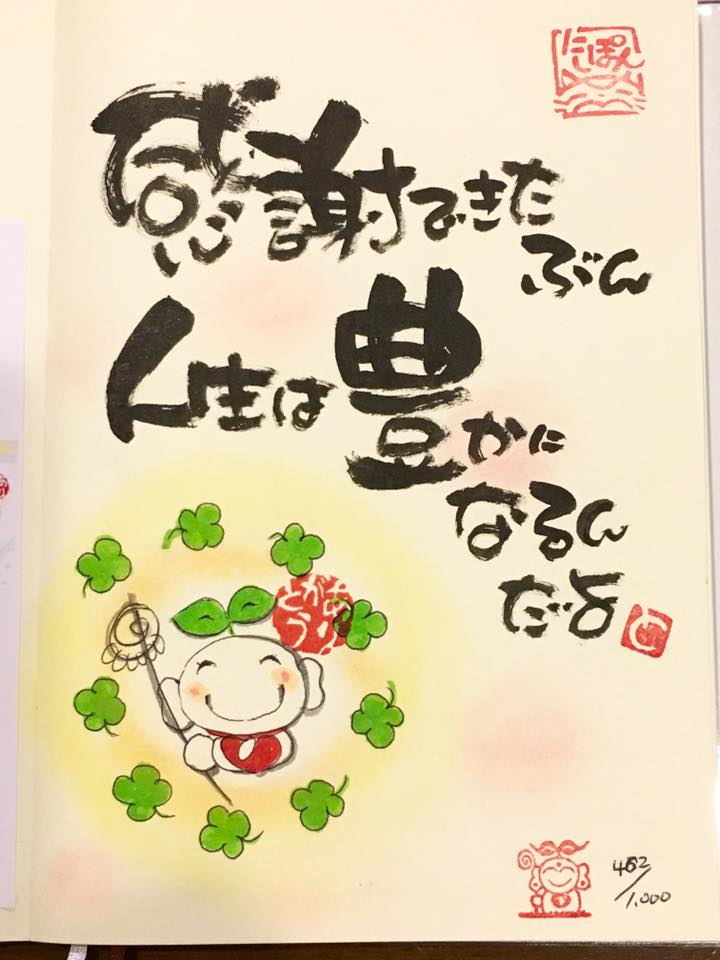 にぽん
感謝できた
ぶん
人生は豊かに
なるん
だよ
と
ありがとう
462/1,000